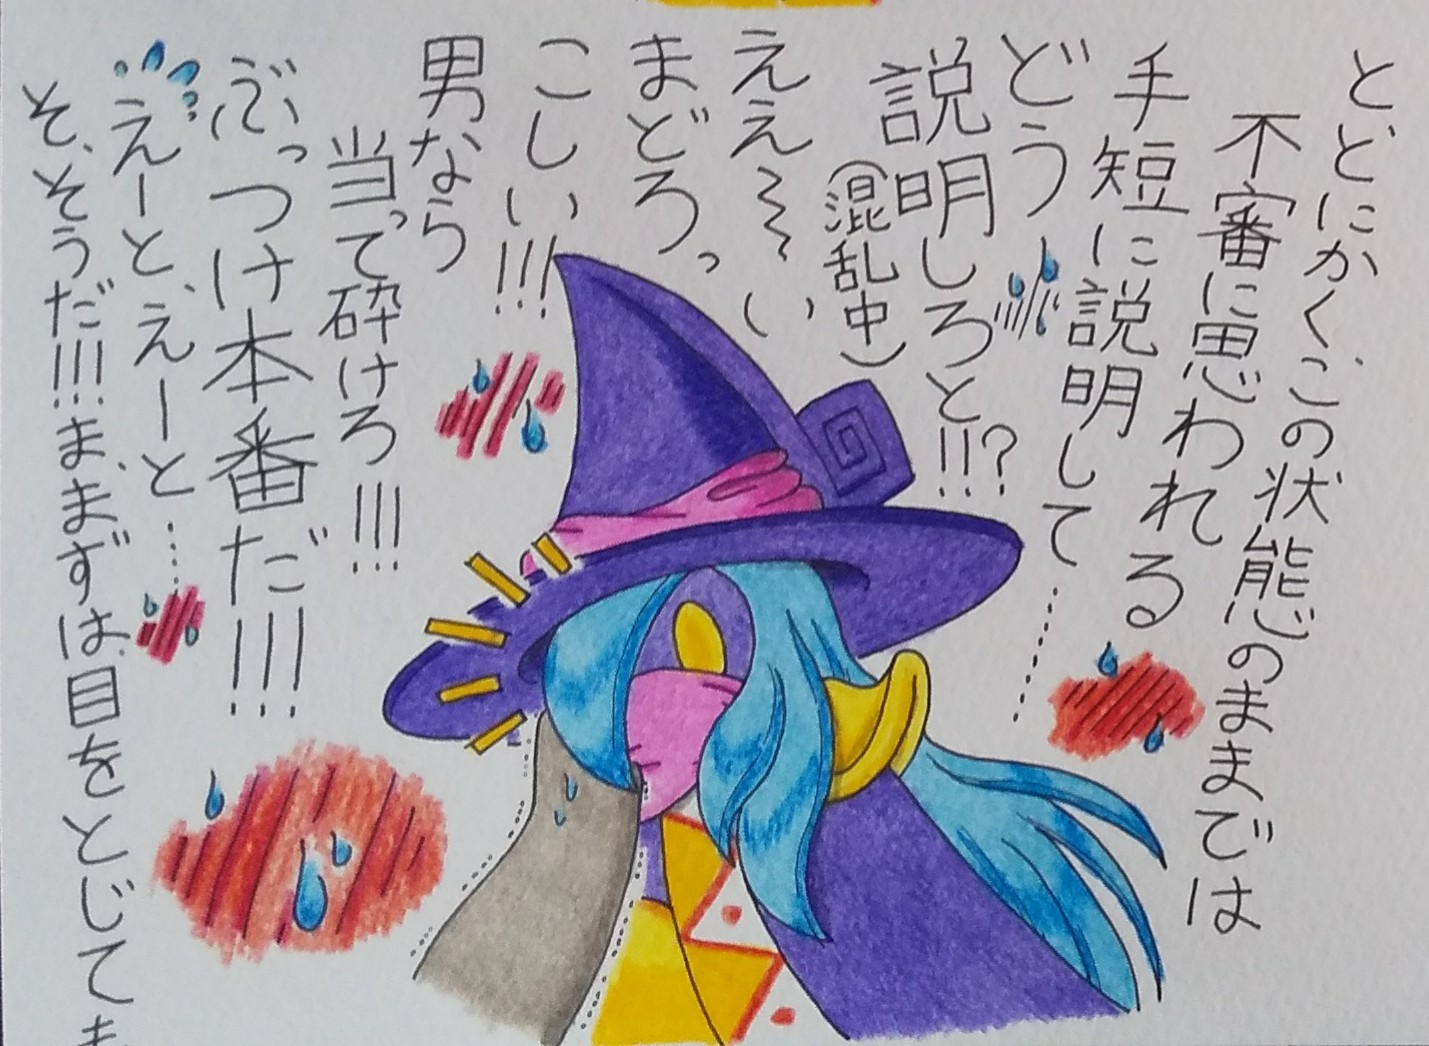 とどにかく、この状態のままでは
不審に思われる
手短に説明して……
どう
説明しろと!!?
(混乱中)
ええ~い
まどろっ
こしい!!!
男なら
当って砕けろ!!!
ぶっつけ本番だ!!!
えーと、えーと……
そ、そうだ!!!ま、まずは、目をとじても